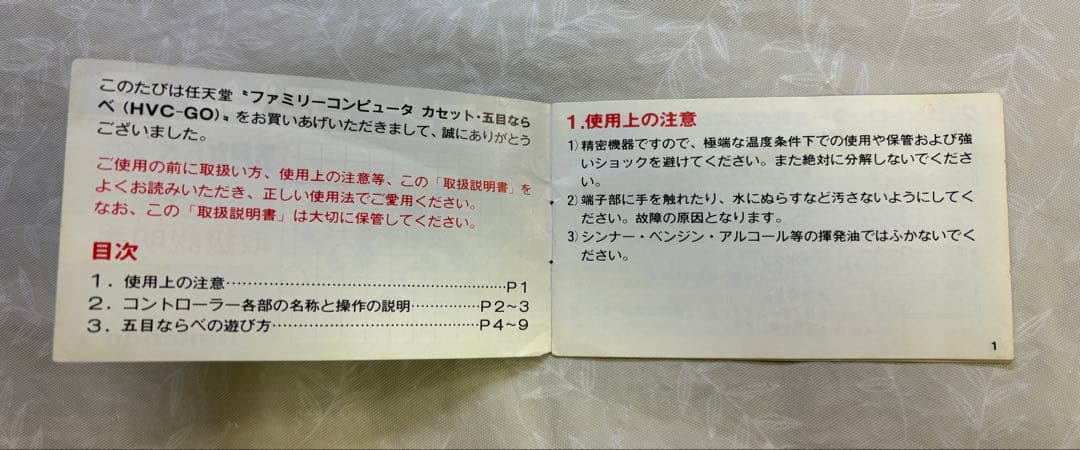 このたびは任天堂〝ファミリーコンピュータ カセット・五目なら
べ (HVC-GO)〟をお買いあげいただきまして、誠にありがとう
ございました。
ご使用の前に取扱い方、使用上の注意等、この「取扱説明書」を
よくお読みいただき、正しい使用法でご愛用ください。
なお、この「取扱説明書」は大切に保管してください。
目次
1．使用上の注意……………………………………………P1
2．コントローラー各部の名称と操作の説明……………P2~3
3．五目ならべの遊び方……………………………………P4~9
1.使用上の注意
1)精密機器ですので、極端な温度条件下での使用や保管および強
いショックを避けてください。また絶対に分解しないでくださ
い。
2)端子部に手を触れたり、水にぬらすなど汚さないようにしてく
ださい。故障の原因となります。
3)シンナー・ベンジン・アルコール等の揮発油ではふかないでく
ださい。
1